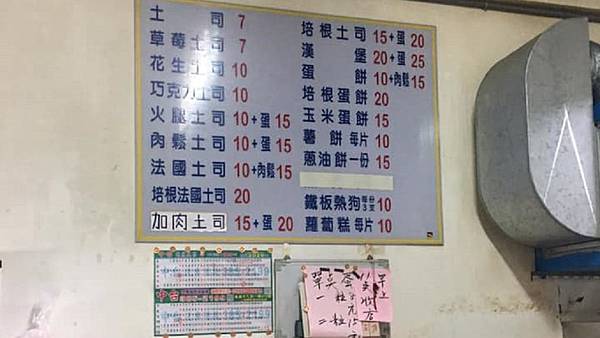 土司 7
草莓土司 7
花生土司 10
巧克力土司 10
火腿土司 10+蛋15
肉鬆土司 10+蛋15
法國土司 10+肉鬆15
培根法國土司 20
加肉土司 15+蛋20
培根土司 15+蛋20
漢堡 20+蛋25
蛋餅 10+肉鬆15
培根蛋餅 20
玉米蛋餅 15
薯餅 每片 10
蔥油餅一份 15
鐵板熱狗 每份3支 10
蘿蔔糕 每片 10
中古
早上